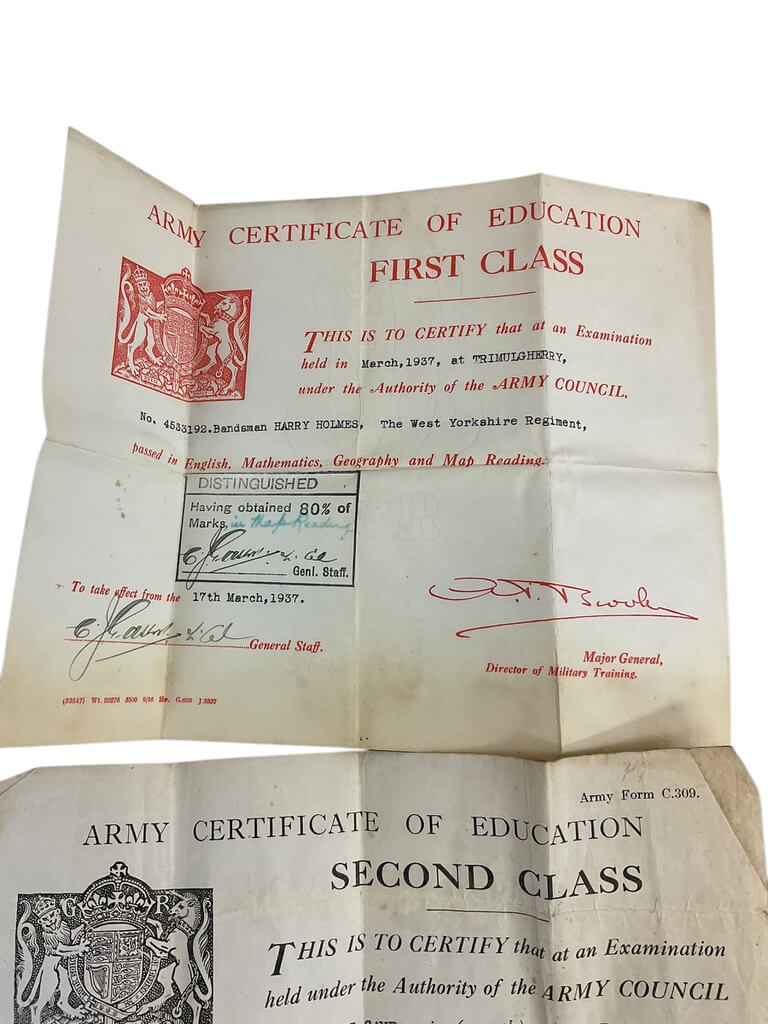 ARMY CERTIFICATE OF EDUCATION
FIRST CLASS
THIS IS TO CERTIFY that at an Examination
held in March,1937, at TRIMULGHERRY,
under the Authority of the ARMY COUNCIL,
No. 4533192.Bandsman HARRY HOLMES, The West Yorkshire Regiment,
passed in English, Mathematics, Geography and Map Reading.
DISTINGUISHED
Having obtained 80% of
Marks. in Map Reading
Genl. Staff.
To take effect from the 17th March,1937.
General Staff.
Major General,
Director of Military Training.
(33547) Wt. 20276 3500 9/36 Hw. G.620 J.3337
Army Form C.309.
ARMY CERTIFICATE OF EDUCATION
SECOND CLASS
G R
THIS IS TO CERTIFY that at an Examination
held under the Authority of the ARMY COUNCIL